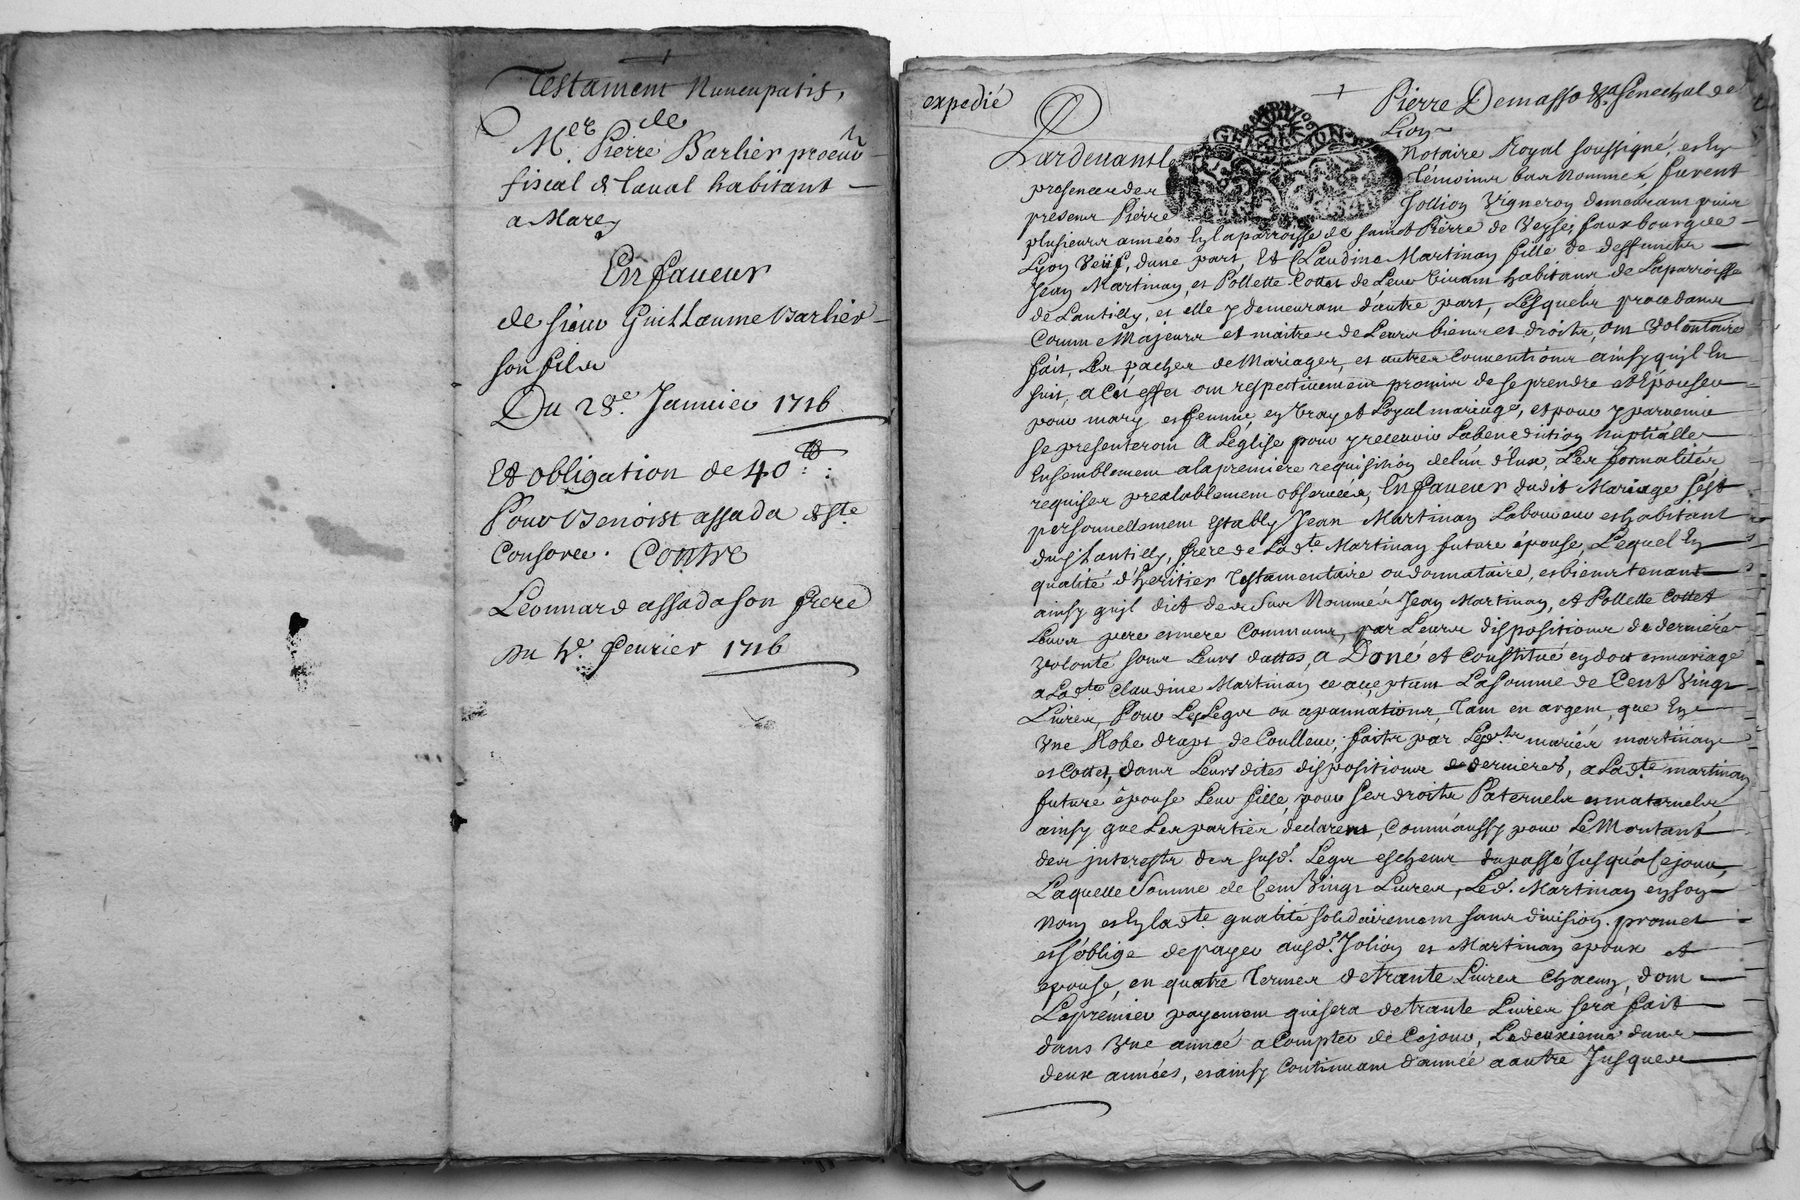 Testament Nuncupatif,
de
Mer. Pierre Barlier procur
fiscal de laual habitant
a Marcy
En faueur
de sieur Guillaume Barlier
son fils
Du 28e. Januier 1716
Et obligation de 40tt:
Pour Benoist assada & ste
Consorce. Contre
Leonnard assada son frere
Du 4e. feurier 1716
expedié
Pierre Demasso sa Senechal de
Lion
Pardeuant le Notaire Royal soussigné, et en
presence des Témoins bas Nommés, furent
presens Pierre Jollion Vigneron demeurant puis
plusieurs année en la parroisse de sainct Pierre de Veyse, fauxbourg de
Lyon Veüf, dune part, Et Claudine Martinay fille de deffuncts
Jean Martinay, et Pollette Cottet de Leur Viuant habitans de La parroisse
de Lantilly, et elle y demeurant d'autre part, Lesquels procedans
Comme Majeurs et maitres de Leurs biens et droits, ont volontairet
fait, Les paches de Mariages, et autres Conuentions ainsy quil En
suit, a Cet effet ont respectiuement promis de se prendre et Epouser
pour mary et femme, en Vray et Loyal mariage, et pour y paruenir
se presenteront a Leglise pour y receuoir La benediction Nuptialle
Ensemblement a la premiere requisition de lun d'Eux, Les formalités
requises prealablement obseruées, En faueur dudit Mariage sest
personnellement Estably Jean Martinay Laboureur et habitant
dud Lantilly, frere de Ladte Martinay future épouse, Lequel En
qualité d'héritier Testamentaire ou donnataire, et biens tenant
ainsy quil dict des sus Nommés Jean Martinay, et Pollette Cottet
Leurs pere et mere Communs, par Leurs dispositions de derniére
volonté sous Leurs dattes, a Doné et Constitué en dot et mariage
a Ladte Claudine Martinay ce acceptant La somme de Cent Vingt
Liures, Pour Les Legs ou apannations, Tant en argent, que En
Vne Robe draps de Coulleur, faits par Lesdts mariés martinay
et Cottet, dans Leursdites dispositions dernieres, a Ladte martinay
future épouse Leur fille, pour ses droits Paternels et maternels
ainsy que Les parties declarent, Comm'aussy pour Le Montant
des interests des susd. Legs escheus du passé Jusqu'a Cejour,
Laquelle Somme de Cent Vingt Liures, Led. Martinay en son
Nom et En ladte qualité solidairement sans diuision. promet
et s'oblige de payer ausds. Jolion et Martinay epoux et
epouse, en quatre Termes de trante Liures Chacun, dont
Le premier payement qui sera de trante Liures sera fait
dans Vne année a Compter de Cejour, Le deuxieme dans
deux années, et ainsy Continuant d'année a autre Jusques